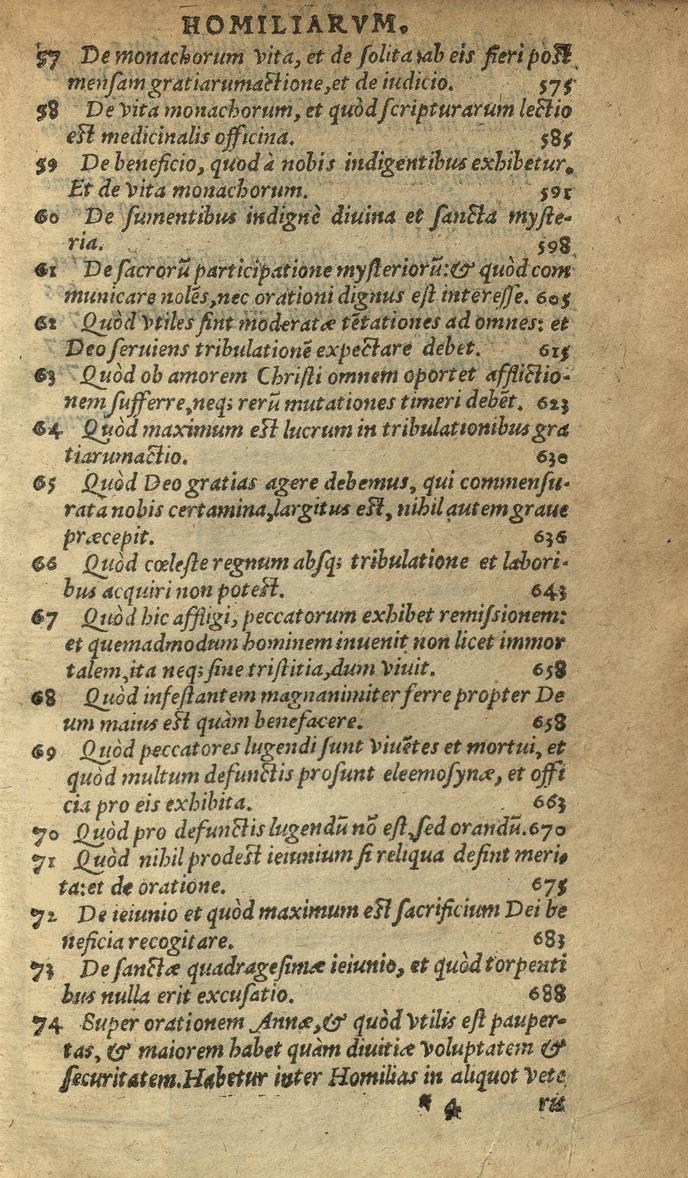 HOMILIARVM.
57 De monachorum vita, et de solita ab eis fieri post
mensam gratiarumactione, et de iudicio. 575
58 De vita monachorum, et quòd scripturarum lectio
est medicinalis officina. 585
59 De beneficio, quod à nobis indigentibus exhibetur.
Et de vita monachorum. 591
60 De sumentibus indignè diuina et sancta myste-
ria. 598
61 De sacrorũ participatione mysteriorũ: & quòd com
municare nolẽs, nec orationi dignus est interesse. 605
62 Quòd vtiles sint moderatæ tẽtationes ad omnes: et
Deo seruiens tribulationẽ expectare debet. 615
63 Quòd ob amorem Christi omnem oportet afflictio-
nem sufferre, neq; rerũ mutationes timeri debẽt. 623
64 Quòd maximum est lucrum in tribulationibus gra
tiarumactio. 630
65 Quòd Deo gratias agere debemus, qui commensu-
rata nobis certamina, largitus est, nihil autem graue
præcepit. 636
66 Quòd cœleste regnum absq; tribulatione et labori-
bus acquiri non potest. 643
67 Quòd hic affligi, peccatorum exhibet remissionem:
et quemadmodum hominem inuenit non licet immor
talem, ita neq; sine tristitia, dum viuit. 658
68 Quòd infestantem magnanimiter ferre propter De
um maius est quàm benefacere. 658
69 Quòd peccatores lugendi sunt viuẽtes et mortui, et
quòd multum defunctis prosunt eleemosynæ, et offi
cia pro eis exhibita. 663
70 Quòd pro defunctis lugendũ nõ est, sed orandũ. 670
71 Quòd nihil prodest ieiunium si reliqua desint meri-
ta: et de oratione. 675
72 De ieiunio et quòd maximum est sacrificium Dei be
neficia recogitare. 683
73 De sanctæ quadragesimæ ieiunio, et quòd torpenti
bus nulla erit excusatio. 688
74 Super orationem Annæ, & quòd vtilis est pauper-
tas, & maiorem habet quàm diuitiæ voluptatem &
securitatem. Habetur inter Homilias in aliquot vete
* 4 ris